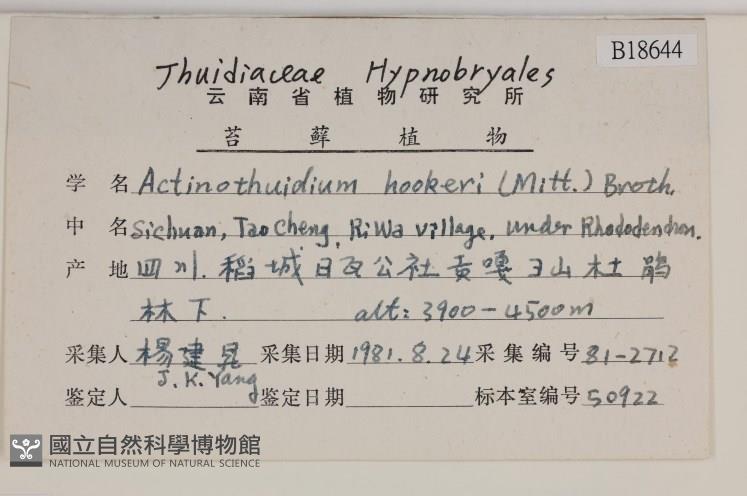 B18644
Thuidiaceae Hypnobryales
云南省植物研究所
苔藓植物
学名 Actinothuidium hookeri (Mitt.) Broth.
中名 Sichuan, Taocheng, RiWa village, under Rhododendron.
产地 四川. 稻城日瓦公社贡嘎ヨ山杜鹃
林下. alt: 3900-4500m
采集人 楊建昆 采集日期 1981.8.24 采集编号 81-2712
J.K.Yang
鉴定人 鉴定日期 标本室编号 50922
國立自然科學博物館
NATIONAL MUSEUM OF NATURAL SCIENCE